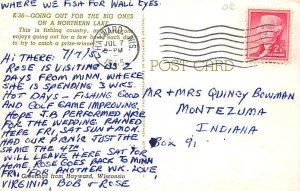 WHERE WE FISH FOR WALL EYES.
K-36—GOING OUT FOR THE BIG ONES
ON A NORTHERN LAKE
This is fishing country, and
enjoys going out for a few hours each day
to try to catch a prize-winner
HI THERE: 7/7/55
ROSE IS VISITING 2
DAYS FROM MINN. WHERE
SHE IS SPENDING 3 WKS.
HOT DAYS - FISHING GOOD
AND GOLF GAME IMPROVING.
HOPE J.B. PERFORMED NICE
FOR THE WEDDING. RAINED
HERE FRI SAT SUN & MON.
HAD OUR PICNIC JUST THE
SAME THE 4TH.
WILL LEAVE HERE SAT FOR
HOME, ROSE GOES BACK TO MINN
FRI. FOR ANOTHER WK. LOVE
VIRGINIA, BOB & ROSE
Greetings from Hayward, Wisconsin
HAYWARD, WIS.
JUL 7
PM
1955
2¢
POST CARD
MR & MRS QUINCY BOWMAN
MONTEZUMA
INDIANA
BOX 91